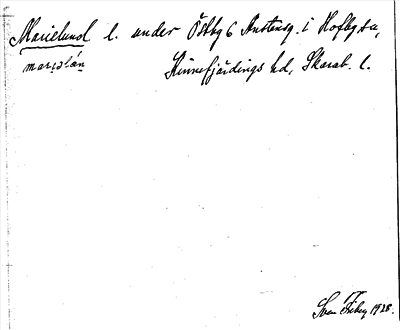 Marielund l. under Östby 6 Anstensg. i Hofby sn,
marɩəlán Kinnefjärdings hd, Skarab. l.
Sven Fribeg 1928.